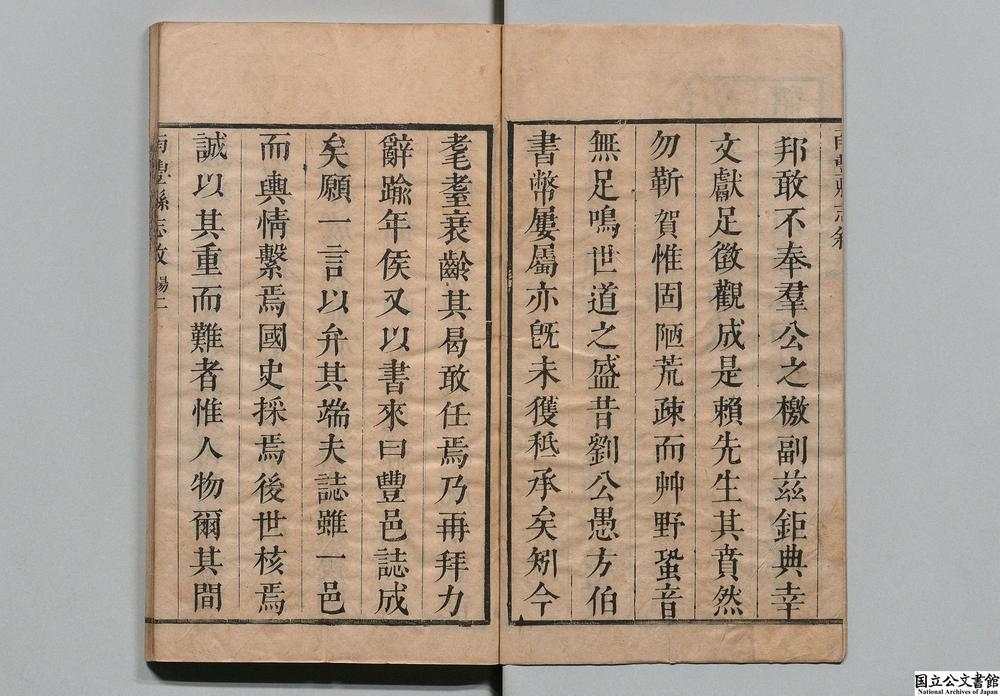 邦敢不奉羣公之檄副茲鉅典幸
文獻足徵觀成是賴先生其賁然
勿靳賀惟固陋荒疎而艸野蛩音
無足鳴世道之盛昔劉公愚方伯
書幣屢屬亦旣未獲秪承矣矧今
耄耋衰齡其曷敢任焉乃再拜力
辭踰年侯又以書來曰豐邑誌成
矣願一言以弁其端夫誌雖一邑
而輿情繫焉國史採焉後世核焉
誠以其重而難者惟人物爾其間
南豐縣志敘 湯二
国立公文書館
National Archives of Japan